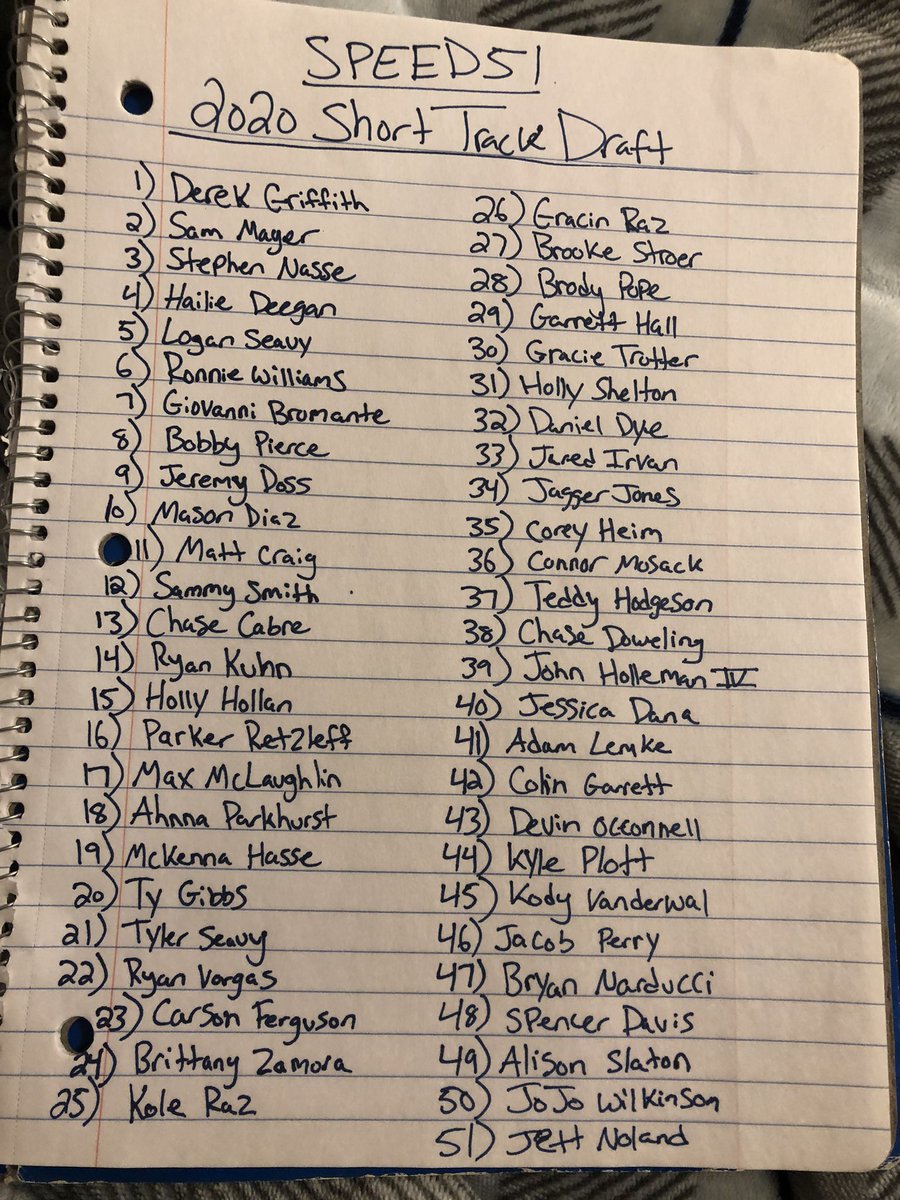 SPEED51
2020 Short Track Draft
1) Derek Griffith
2) Sam Mayer
3) Stephen Nasse
4) Hailie Deegan
5) Logan Seavy
6) Ronnie Williams
7) Giovanni Bromante
8) Bobby Pierce
9) Jeremy Doss
10) Mason Diaz
11) Matt Craig
12) Sammy Smith
13) Chase Cabre
14) Ryan Kuhn
15) Holly Hollan
16) Parker Retzleff
17) Max McLaughlin
18) Ahnna Parkhurst
19) McKenna Hasse
20) Ty Gibbs
21) Tyler Seavy
22) Ryan Vargas
23) Carson Ferguson
24) Brittany Zamora
25) Kole Raz
26) Gracin Raz
27) Brooke Stroer
28) Brody Pope
29) Garrett Hall
30) Gracie Trotter
31) Holly Shelton
32) Daniel Dye
33) Jared Irvan
34) Jagger Jones
35) Corey Heim
36) Connor Mosack
37) Teddy Hodgeson
38) Chase Doweling
39) John Holleman IV
40) Jessica Dana
41) Adam Lemke
42) Colin Garrett
43) Devin Occonnell
44) Kyle Plott
45) Kody Vanderwal
46) Jacob Perry
47) Bryan Narducci
48) Spencer Davis
49) Alison Slaton
50) JoJo Wilkinson
51) Jett Noland